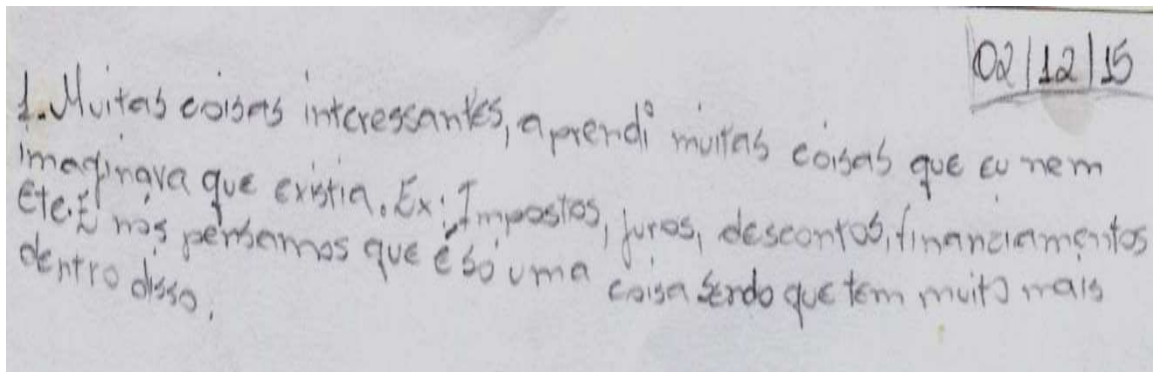 02/12/15
1. Muitas coisas interessantes, aprendi muitas coisas que eu nem
imaginava que existia. Ex: Impostos, juros, descontos, financiamentos
etc. E nós pensamos que é só uma coisa sendo que tem muito mais
dentro disso.